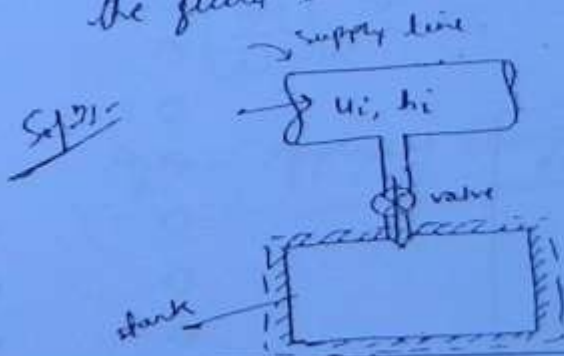 the
supply line
Solⁿ:-
ui, hi
valve